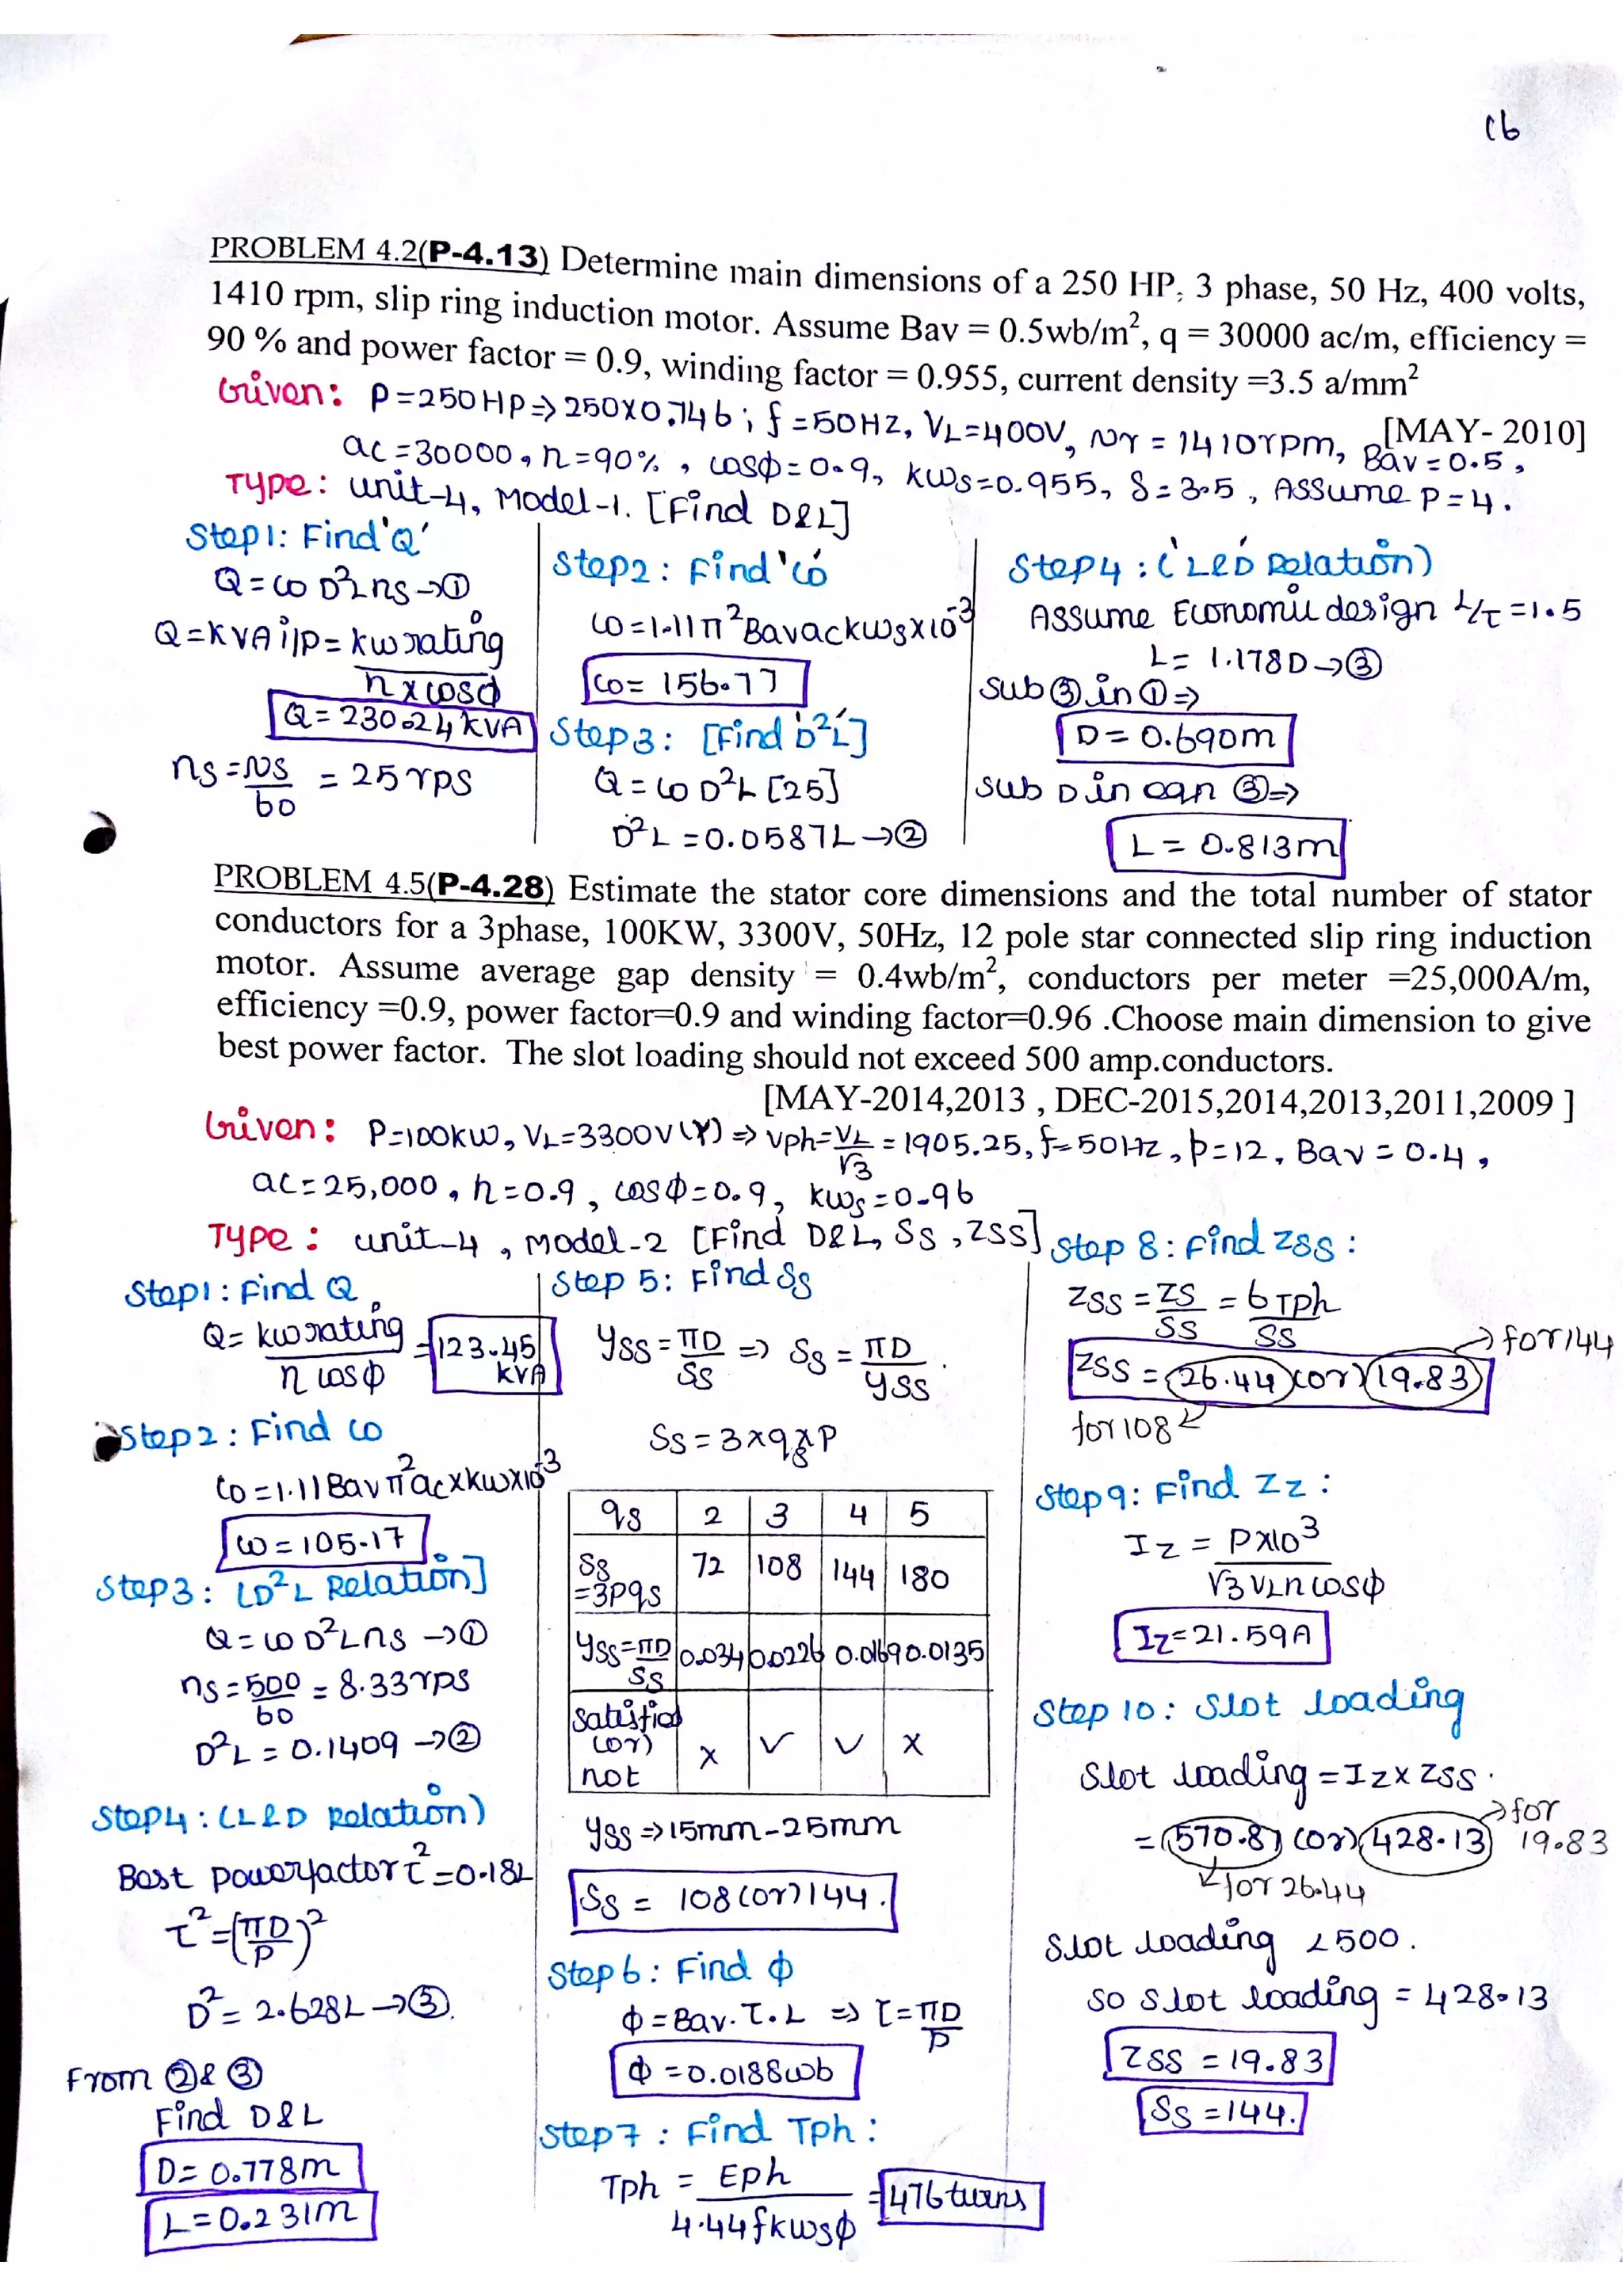 16
PROBLEM 4.2(P-4.13) Determine main dimensions of a 250 HP, 3 phase, 50 Hz, 400 volts,
1410 rpm, slip ring induction motor. Assume Bav = 0.5wb/m², q = 30000 ac/m, efficiency =
90 % and power factor = 0.9, winding factor = 0.955, current density =3.5 a/mm²
[MAY- 2010]
Given: P=250HP⇒250X0.746; f=50HZ, VL=400V, Nr = 1410rpm, Bav=0.5,
ac=30000, η=90%, cosφ=0.9, Kws=0.955, δ=3.5, Assume P=4.
Type: unit-4, Model-1. [Find D&L]
Step1: Find 'Q'
Q=co D²Lns→①
Q=KVA i/p= kw rating
η x cosφ
Q=230.24 KVA
ns=Ns/60 = 25 rps
Step2: Find 'co'
co=1.11π²Bavackwsx10⁻³
co= 156.77
Step3: [Find 'D²L']
Q=co D²L [25]
D²L=0.0587L→②
Step4: ('L&D' Relation)
Assume Economic design L/τ=1.5
L= 1.178D→③
sub ③ in ①⇒
D= 0.690m
sub D in eqn ③⇒
L= 0.813m
PROBLEM 4.5(P-4.28) Estimate the stator core dimensions and the total number of stator
conductors for a 3phase, 100KW, 3300V, 50Hz, 12 pole star connected slip ring induction
motor. Assume average gap density = 0.4wb/m², conductors per meter =25,000A/m,
efficiency =0.9, power factor=0.9 and winding factor=0.96 .Choose main dimension to give
best power factor. The slot loading should not exceed 500 amp.conductors.
[MAY-2014,2013 , DEC-2015,2014,2013,2011,2009 ]
Given: P=100KW, VL=3300V(Y)⇒Vph=VL/√3=1905.25, f=50Hz, p=12, Bav=0.4,
ac=25,000, η=0.9, cosφ=0.9, kws=0.96
Type: unit-4, model-2 [Find D&L, Ss, Zss]
Step1: Find Q
Q= kw rating / η cosφ = 123.45 KVA
Step2: Find co
co=1.11Bavπ²acxkwx10⁻³
co=105.17
Step3: [D²L Relation]
Q=co D²Lns→①
ns=500/60=8.33rps
D²L=0.1409→②
Step4: (L&D Relation)
Best powerfactor τ²=0.18L
τ²=(πD/P)²
D²=2.628L→③.
From ②&③
Find D&L
D=0.778m
L=0.231m
Step 5: Find Ss
yss=πD/Ss ⇒ Ss=πD/yss.
Ss=3xqsxP
qs 2 3 4 5
Ss=3Pqs 72 108 144 180
yss=πD/Ss 0.034 0.0226 0.0169 0.0135
satisfied (or) not x ✓ ✓ x
yss⇒15mm-25mm
Ss= 108(or)144.
Step6: Find φ
φ=Bav.τ.L ⇒ τ=πD/P
φ=0.0188wb
Step7: Find Tph:
Tph = Eph / 4.44fkwsφ = 476turns
Step 8: Find Zss:
Zss=Zs/Ss = 6Tph/Ss
Zss= 26.44 (or) 19.83
for 144
for 108
Step9: Find Zz:
Iz = Px10³ / √3 VLη cosφ
Iz=21.59A
Step 10: Slot loading
Slot loading = Iz x Zss.
= 570.8 (or) 428.13
for 19.83
for 26.44
Slot loading <500.
so slot loading = 428.13
Zss = 19.83
Ss=144.